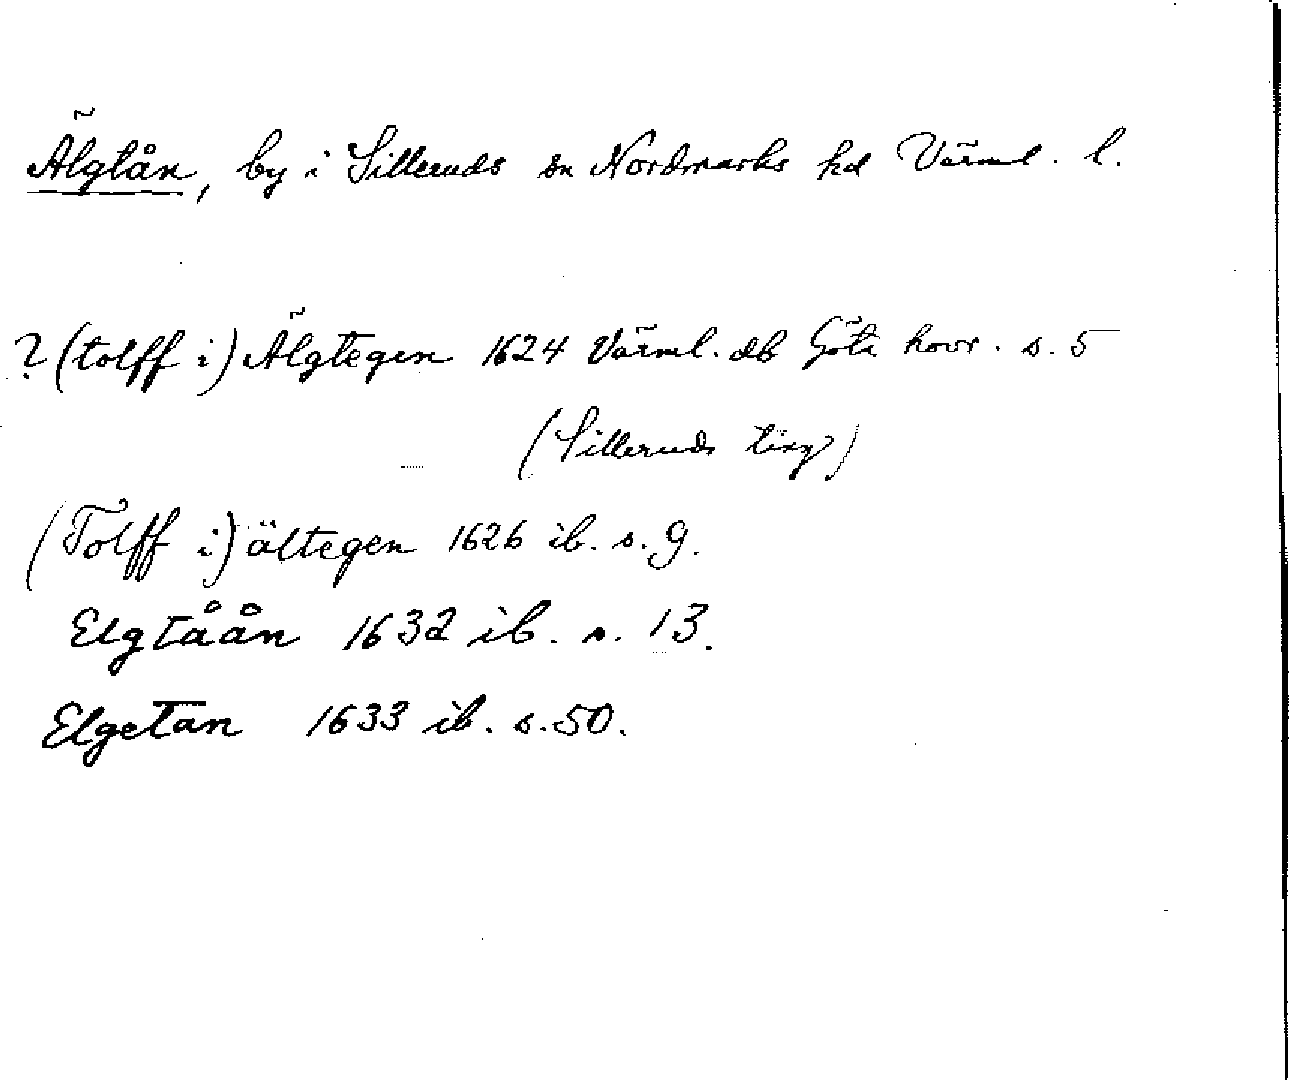 Älgtån, by i Silleruds sn Nordmarks hd Värml. l.
? (tolff i) Älgtegen 1624 Värml. db Göta hovr. s. 5
(Silleruds ting)
(Tolff i) ältegen 1626 ib. s. 9.
Elgtåån 1632 ib. s. 13.
Elgetan 1633 ib. s. 50.